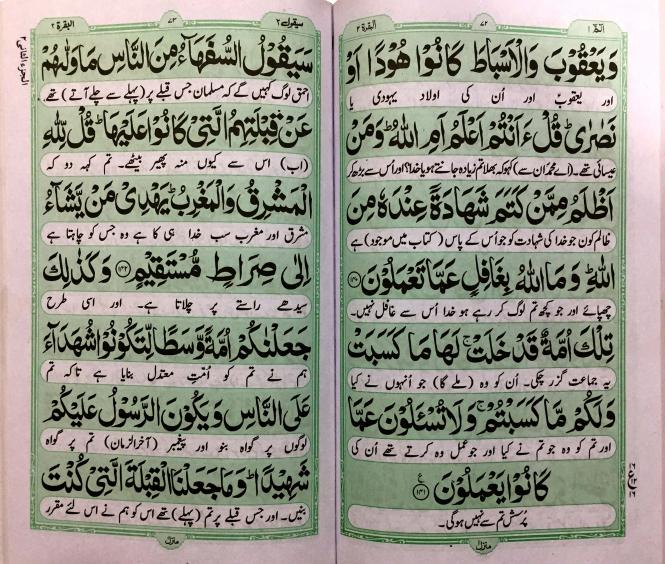 الٓمّٓ ١
٧٢
البقرة ٢
وَيَعْقُوْبَ وَالْاَسْبَاطَ كَانُوْا هُوْدًا اَوْ
اور یعقوبؑ اور اُن کی اولاد یہودی یا
نَصٰرٰىؕ قُلْ ءَاَنْتُمْ اَعْلَمُ اَمِ اللّٰهُؕ وَمَنْ
عیسائی تھے۔ (اے محمدؐ ان سے) کہو کہ بھلا تم زیادہ جانتے ہو یا خدا؟ اور اُس سے بڑھ کر
اَظْلَمُ مِمَّنْ كَتَمَ شَهَادَةً عِنْدَهٗ مِنَ
ظالم کون جو خدا کی شہادت کو جو اُس کے پاس (کتاب میں موجود) ہے
اللّٰهِؕ وَمَا اللّٰهُ بِغَافِلٍ عَمَّا تَعْمَلُوْنَ ﴿١٤٠﴾
چھپائے اور جو کچھ تم لوگ کر رہے ہو خدا اُس سے غافل نہیں۔
تِلْكَ اُمَّةٌ قَدْ خَلَتْۚ لَهَا مَا كَسَبَتْ
یہ جماعت گزر چکی۔ اُن کو وہ (ملے گا) جو اُنہوں نے کیا
وَلَكُمْ مَّا كَسَبْتُمْۚ وَلَا تُسْـَٔلُوْنَ عَمَّا
اور تم کو وہ جو تم نے کیا اور جو عمل وہ کرتے تھے اُن کی
كَانُوْا يَعْمَلُوْنَ ﴿١٤١﴾ ع
پُرسش تم سے نہیں ہوگی۔
منزل ١
سيقول ٢
٧٣
البقرة ٢
الجزء الثانی ٢
سَيَقُوْلُ السُّفَهَآءُ مِنَ النَّاسِ مَا وَلّٰىهُمْ
احمق لوگ کہیں گے کہ مسلمان جس قبلے پر (پہلے سے چلے آتے) تھے
عَنْ قِبْلَتِهِمُ الَّتِيْ كَانُوْا عَلَيْهَاؕ قُلْ لِّلّٰهِ
(اب) اس سے کیوں منہ پھیر بیٹھے۔ تم کہہ دو کہ
الْمَشْرِقُ وَالْمَغْرِبُؕ يَهْدِيْ مَنْ يَّشَآءُ
مشرق اور مغرب سب خدا ہی کا ہے وہ جس کو چاہتا ہے
اِلٰى صِرَاطٍ مُّسْتَقِيْمٍ ﴿١٤٢﴾ وَكَذٰلِكَ
سیدھے راستے پر چلاتا ہے۔ اور اسی طرح
جَعَلْنٰكُمْ اُمَّةً وَّسَطًا لِّتَكُوْنُوْا شُهَدَآءَ
ہم نے تم کو اُمّتِ معتدل بنایا ہے تاکہ تم
عَلَى النَّاسِ وَيَكُوْنَ الرَّسُوْلُ عَلَيْكُمْ
لوگوں پر گواہ بنو اور پیغمبر (آخر الزمان) تم پر گواہ
شَهِيْدًاؕ وَمَا جَعَلْنَا الْقِبْلَةَ الَّتِيْ كُنْتَ
بنیں۔ اور جس قبلے پر تم (پہلے) تھے اس کو ہم نے اس لئے مقرر
منزل ١